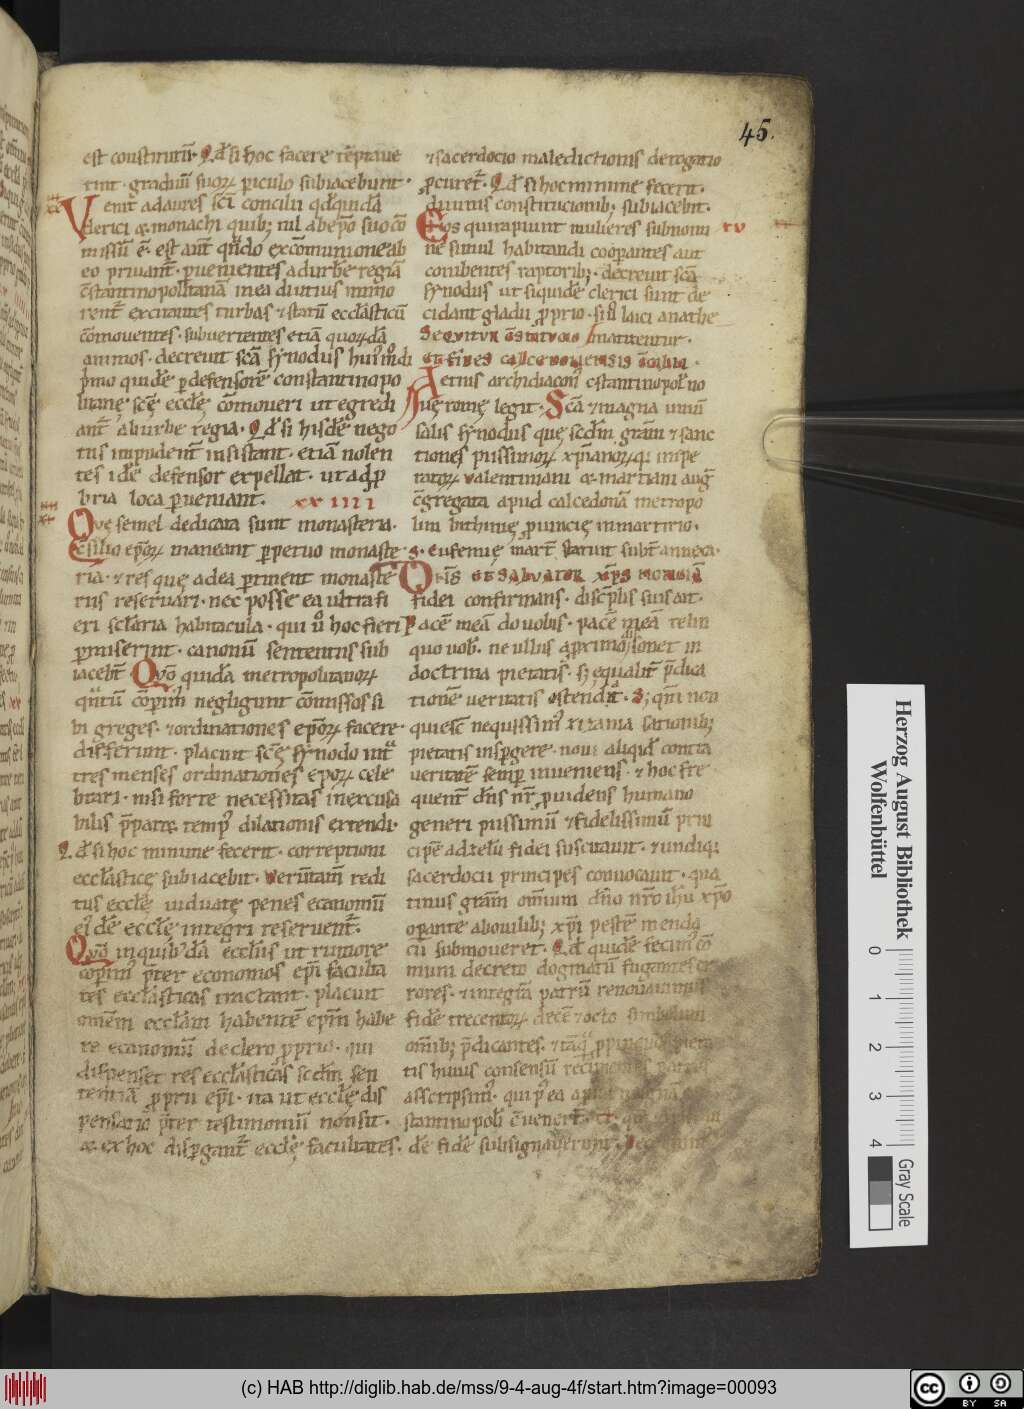 45.
est constitutū. Qđ si hoc facere tēptaue
rint. graduū suoꝝ periculo subiacebunt.
Venit ad aures scī concilii qđ quidā
clerici & monachi quibꝫ nil ab epō suo cō
missū ē. est aūt qn̄do excōmunione ab
eo priuant̄. peruenientes ad urbē regiā
cōstantinopolitanā in ea diutius mmo
rent̄ excitantes turbas & statū ecclāsticū
cōmouentes. subuertentes etiā quorꝝdā
animos. decreuit scā synodus huiꝰmodi
primo quidē per defensorē constantinopo
litanę scę ecclę cōmoueri ut egredi
ant̄ ab urbe regia. Qđ si hisdē nego
tiis inpudent̄ insistant. etiā nolen
tes idē defensor expellat. ut ad prop
bria loca perueniant. xxiiii
Quę semel dedicata sunt monasteria.
consilio epōꝝ maneant perpetuo monaste
ria. & res quę ad ea pertinent monaste
riis reseruari. nec posse ea ultra fi
eri sclāria habitacula. qui ū hoc fieri
permiserint. canonū sententiis sub
iacebt̄. Quō quidā metropolitanoꝝ
quantū comperimꝰ negligunt cōmissos si
bi greges. & ordinationes epōꝝ facere
differunt. placuit scę synodo intra
tres menses ordinationes epōꝝ cele
brari. nisi forte necessitas inexcusa
bilis pparet tempꝰ dilationis extendi.
Qđ si hoc minime fecerit. correptioni
ecclāsticę subiacebit. Verūtam̄ redi
tus ecclę uiduatę penes economū
eiꝰdē ecclę integri reseruent̄.
Quō in quibꝰdā ecclīis ut rumore
comperimꝰ pter economos epī faculta
tes ecclāsticas tractant. placuit
omēm ecclām habentē epm̄ habe
re economū de clero proprio. qui
dispenset res ecclāsticas scdm̄ sen
tentiā proprii epī. ita ut ecclę dis
pensatio pter testimoniū non sit.
& ex hoc dispergant̄ ecclę facultates.
& sacerdocio maledictionis derogatio
procuret̄. Qđ si hoc minime fecerit.
diuinis constitucionibꝫ subiacebit.
Eos qui rapiunt mulieres sub nomi xxv
ne simul habitandi cooperantes aut
conibentes raptoribꝫ. decreuit scā
synodus ut siquidē clerici sunt de
cidant gladu proprio. si ū laici anathe
matitentur.
Aetius archidiaconꝰ cstantinopolꝰ no
uę romę legit. Scā & magna uniū
salis synodus quę scdm̄ gram̄ & sanc
tiones piissimoꝝ xpīanoꝝqꝫ impe
ratoꝝ valentiniani & martiani augꝰ
cōgregata apud calcedonā metropo
lim bithinię prouincię in martirio.
s. eufemię mart̄. statuit subt̄ annexa.
Dn̄s et saluator xp̄s
fidei confirmans. disciplīs suis ait.
Pacē meā do uobis. pacē meā relin
quo uob̄. ne ullus a proximo sonet in
doctrina pietatis. sꝫ equalit̄ pdica
tionē ueritatis ostendit̄. Sꝫ qm̄ non
quiescꝰ nequissimꝰ zizania sationibꝫ
pietatis inspergere. nouū aliquid contra
ueritatē semper inueniens. & hoc fre
quent̄ dn̄s nr̄ prouidens humano
generi piissimū & fidelissimū prin
cipē ad zelū fidei suscitauit. & undiqꝫ
sacerdocii principes conuocauit. qua
tinus gram̄ omnium dn̄o nr̄o ihū xpō
operante ab ouilibꝫ xpī pestē menda
cii submoueret. Qđ quidē fecimꝰ cō
muni decreto dogmatū fugantes er
rores. & integrā patrū renouauimus
fidē trecentoꝝ decē & octo simbolum
omībꝫ pdicantes. & tāqꝫ
tis huius consensū
asscripsimꝰ. qui pꝰ ea
stantinopolī cuener
de fide subsignauerunt.
Herzog August Bibliothek
Wolfenbüttel
0 1 2 3 4
Gray Scale
(c) HAB http://diglib.hab.de/mss/9-4-aug-4f/start.htm?image=00093
cc BY SA